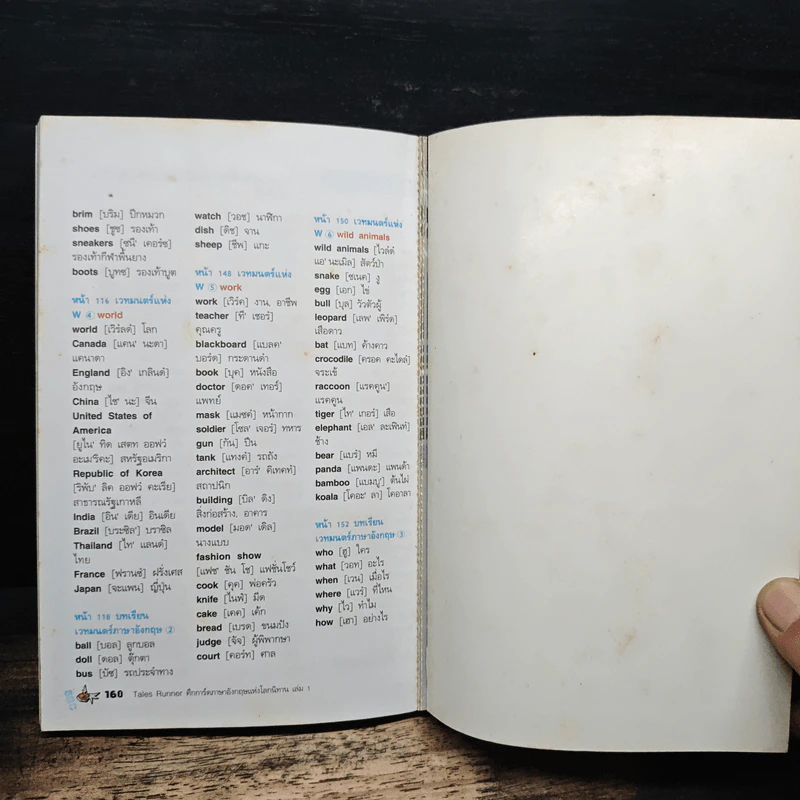 brim [บริม] ปีกหมวก
shoes [ชูช] รองเท้า
sneakers [ซนี' เคอร์ซ]
รองเท้ากีฬาพื้นยาง
boots [บูทซ] รองเท้าบูต
หน้า 116 เวทมนตร์แห่ง
W ④ world
world [เวิร์ลด์] โลก
Canada [แคน' นะดา]
แคนาดา
England [อิง' เกลินด์]
อังกฤษ
China [ไช' นะ] จีน
United States of
America
[ยูไน' ทิด เสตท ออฟว์
อะเมริคะ] สหรัฐอเมริกา
Republic of Korea
[ริพับ' ลิค ออฟว์ คะเรีย]
สาธารณรัฐเกาหลี
India [อิน' เดีย] อินเดีย
Brazil [บระซิล'] บราซิล
Thailand [ไท' แลนด์]
ไทย
France [ฟรานซ์] ฝรั่งเศส
Japan [จะแพน] ญี่ปุ่น
หน้า 118 บทเรียน
เวทมนตร์ภาษาอังกฤษ ②
ball [บอล] ลูกบอล
doll [ดอล] ตุ๊กตา
bus [บัซ] รถประจำทาง
watch [วอช] นาฬิกา
dish [ดิช] จาน
sheep [ชีพ] แกะ
หน้า 148 เวทมนตร์แห่ง
W ⑤ work
work [เวิร์ค] งาน, อาชีพ
teacher [ที' เชอร์]
คุณครู
blackboard [แบลค'
บอร์ด] กระดานดำ
book [บุค] หนังสือ
doctor [ดอค' เทอร์]
แพทย์
mask [แมซค์] หน้ากาก
soldier [โซล' เจอร์] ทหาร
gun [กัน] ปืน
tank [แทงค์] รถถัง
architect [อาร์' คิเทคท์]
สถาปนิก
building [บิล' ดิง]
สิ่งก่อสร้าง, อาคาร
model [มอด' เดิล]
นางแบบ
fashion show
[แฟช' ชัน โช] แฟชั่นโชว์
cook [คุค] พ่อครัว
knife [ไนฟ์] มีด
cake [เคค] เค้ก
bread [เบรด] ขนมปัง
judge [จัจ] ผู้พิพากษา
court [คอร์ท] ศาล
หน้า 150 เวทมนตร์แห่ง
W ⑥ wild animals
wild animals [ไวล์ด์
แอ' นะเมิล] สัตว์ป่า
snake [ซเนค] งู
egg [เอก] ไข่
bull [บุล] วัวตัวผู้
leopard [เลพ' เพิร์ด]
เสือดาว
bat [แบท] ค้างคาว
crocodile [ครอค คะไดล์]
จระเข้
raccoon [แรคคูน']
แรคคูน
tiger [ไท' เกอร์] เสือ
elephant [เอล' ละเฟินท์]
ช้าง
bear [แบร์] หมี
panda [แพนดะ] แพนด้า
bamboo [แบมบู'] ต้นไผ่
koala [โคอะ' ลา] โคอาลา
หน้า 152 บทเรียน
เวทมนตร์ภาษาอังกฤษ ③
who [ฮู] ใคร
what [วอท] อะไร
when [เวน] เมื่อไร
where [แวร์] ที่ไหน
why [ไว] ทำไม
how [เฮา] อย่างไร
160 Tales Runner ศึกการ์ดภาษาอังกฤษแห่งโลกนิทาน เล่ม 1